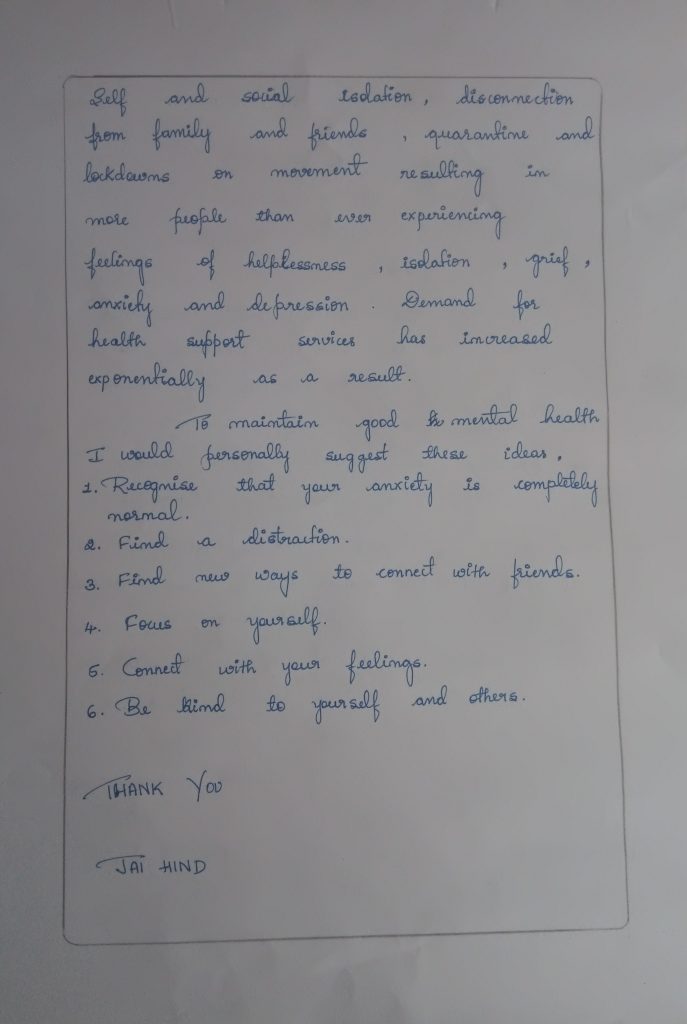 Self and social isolation, disconnection
from family and friends, quarantine and
lockdowns on movement resulting in
more people than ever experiencing
feelings of helplessness, isolation, grief,
anxiety and depression. Demand for
health support services has increased
exponentially as a result.
To maintain good mental health
I would personally suggest these ideas,
1. Recognise that your anxiety is completely
normal.
2. Find a distraction.
3. Find new ways to connect with friends.
4. Focus on yourself.
5. Connect with your feelings.
6. Be kind to yourself and others.
THANK YOU
JAI HIND